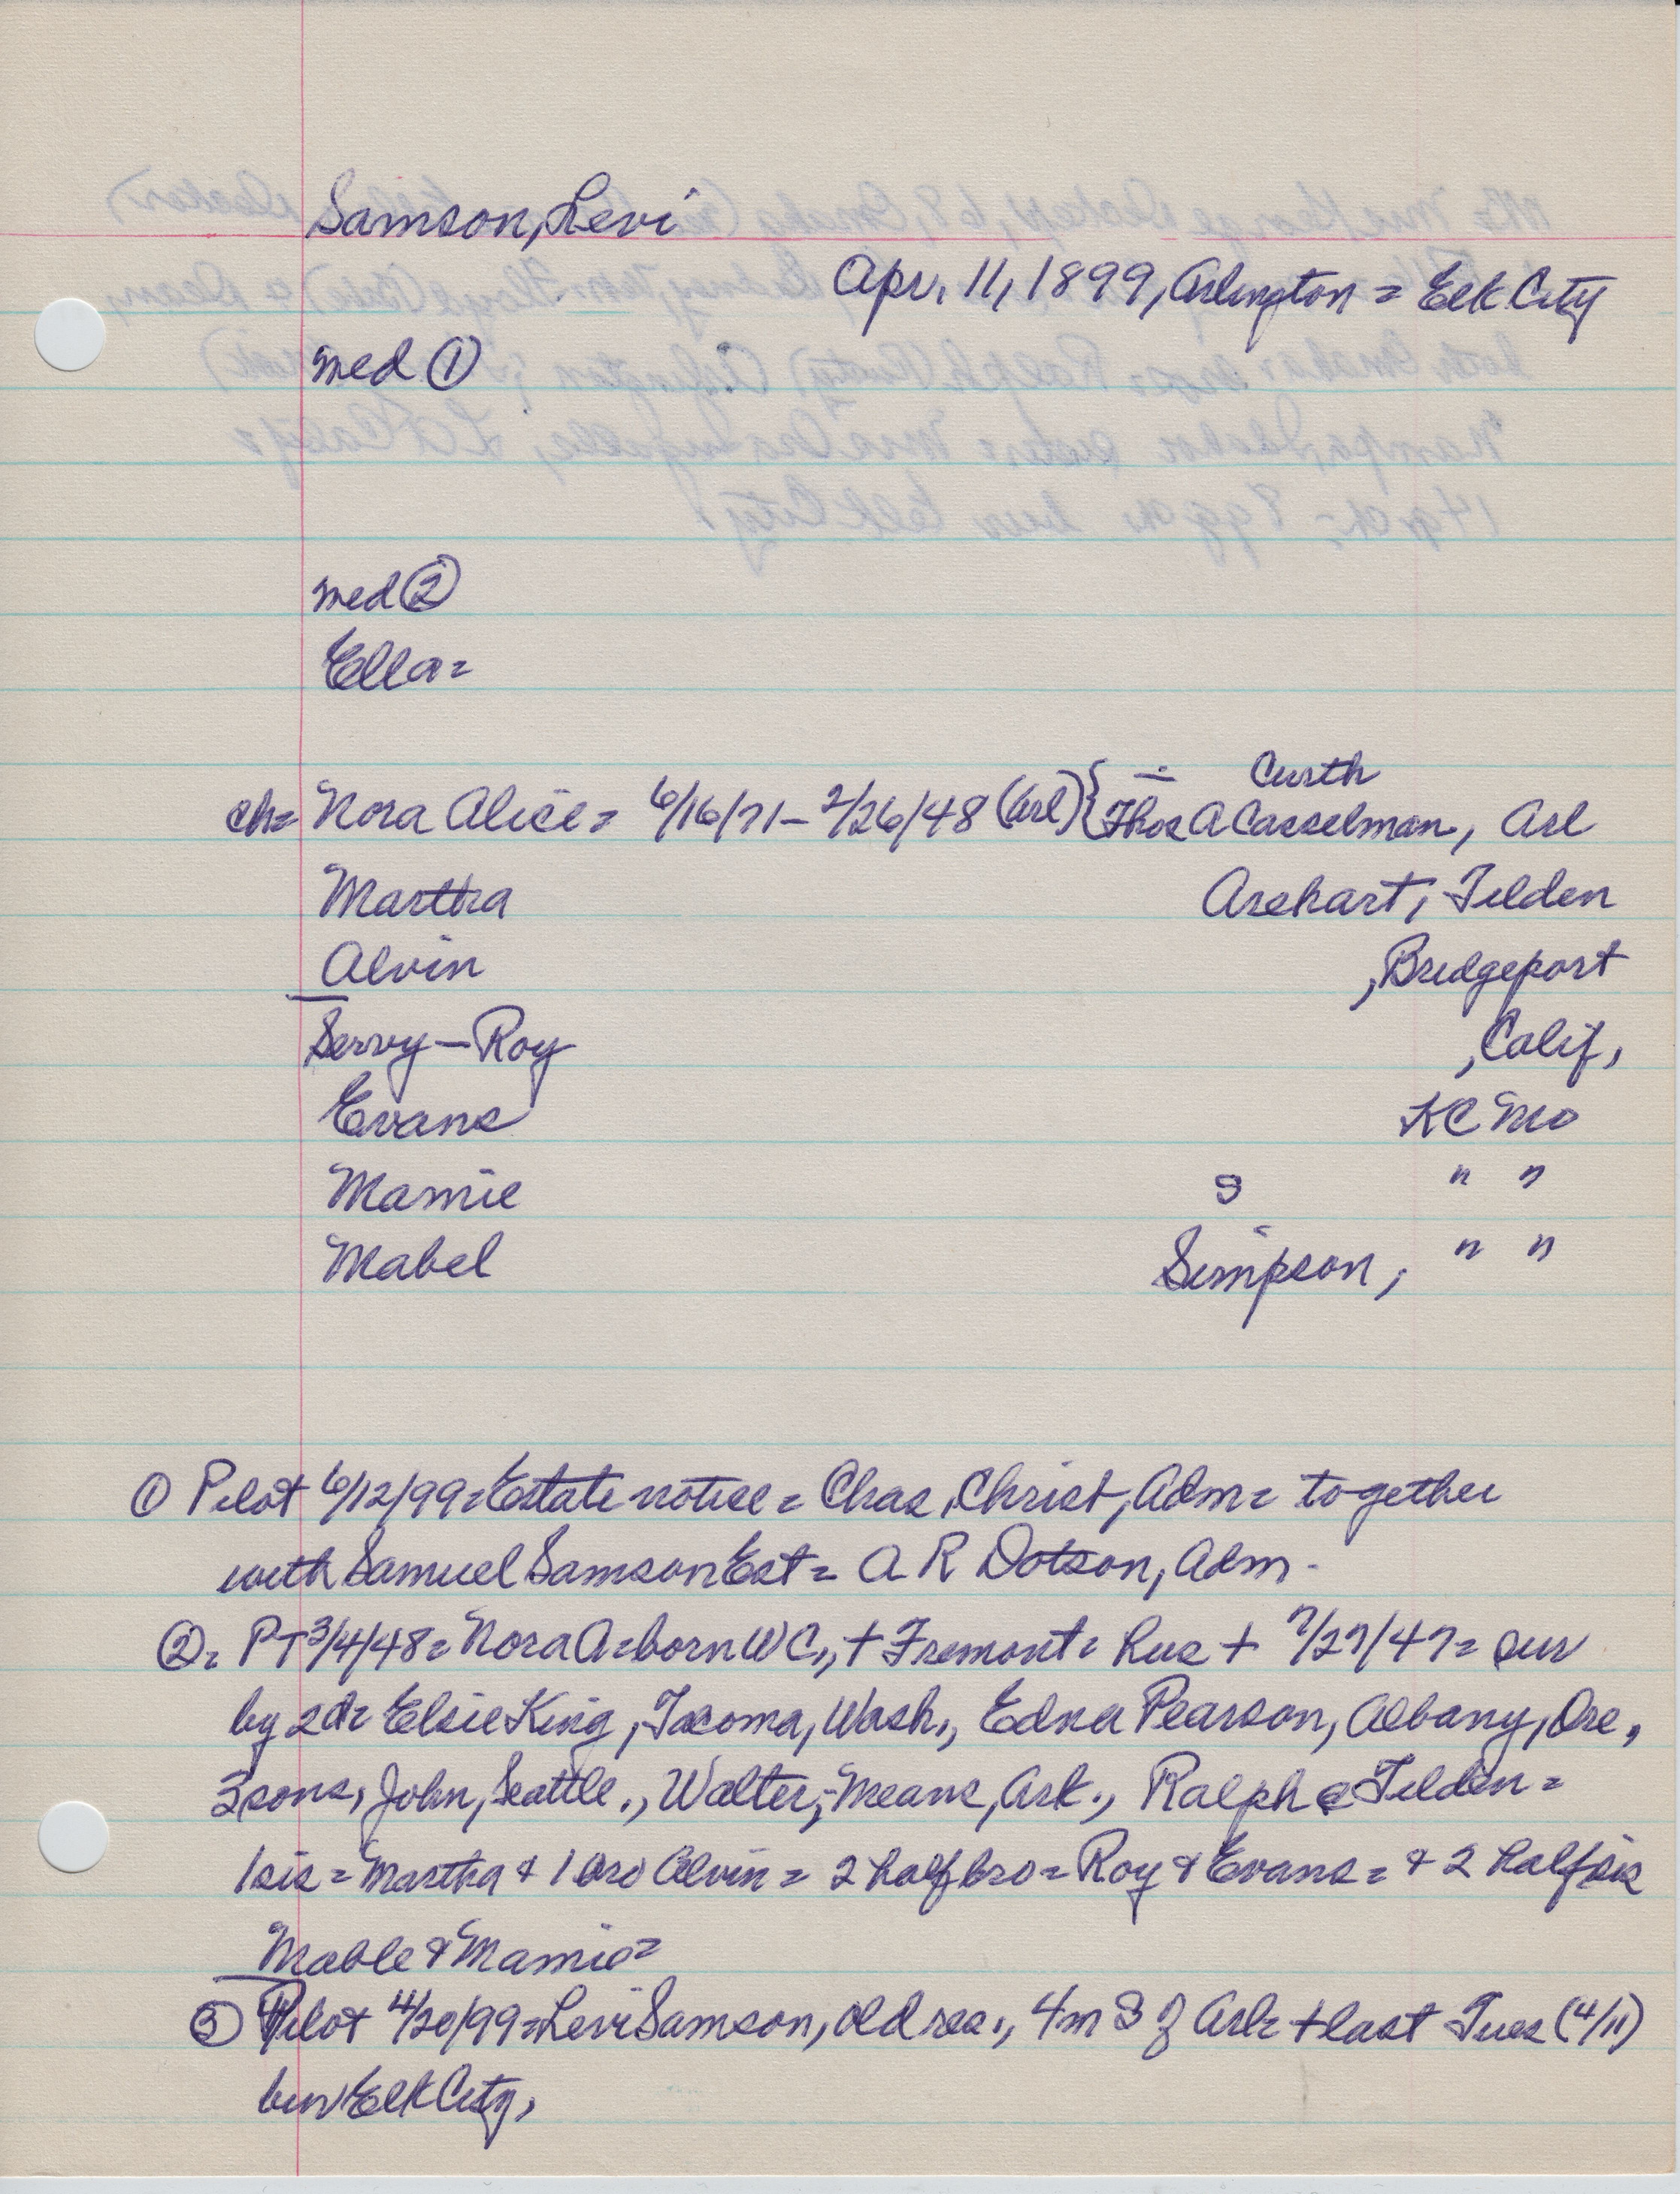 Samson, Levi
Apr. 11, 1899, Arlington = Elk City
med ①
med ②
Ella =
Curth
ch = Nora Alice = 6/16/71 - 2/26/48 (Arl) { Thos A Casselman, Arl
Martha Arehart, Tilden
Alvin , Bridgeport
Servy - Roy , Calif,
Evans KC Mo
Mamie S " "
Mabel Simpson, " "
① Pilot 6/12/99 = Estate notice = Chas, Christ, Adm = together
with Samuel Samson Est = A R Dotson, Adm -
② = PT 3/4/48 = Nora A = born W C,, + Fremont = hus + 7/27/47 = sur
by 2 d = Elsie King, Tacoma, Wash., Edna Pearson, Albany, Ore,
3 sons, John, Seattle., Walter, Means, Ark., Ralph @ Tilden =
1 sis = Martha & 1 bro Alvin = 2 half bro = Roy & Evans = & 2 half sis
Mable & Mamie =
③ Pilot 4/20/99 = Levi Samson, old res., 4 m S of Arl = + last Tues (4/11)
bur Elk City,